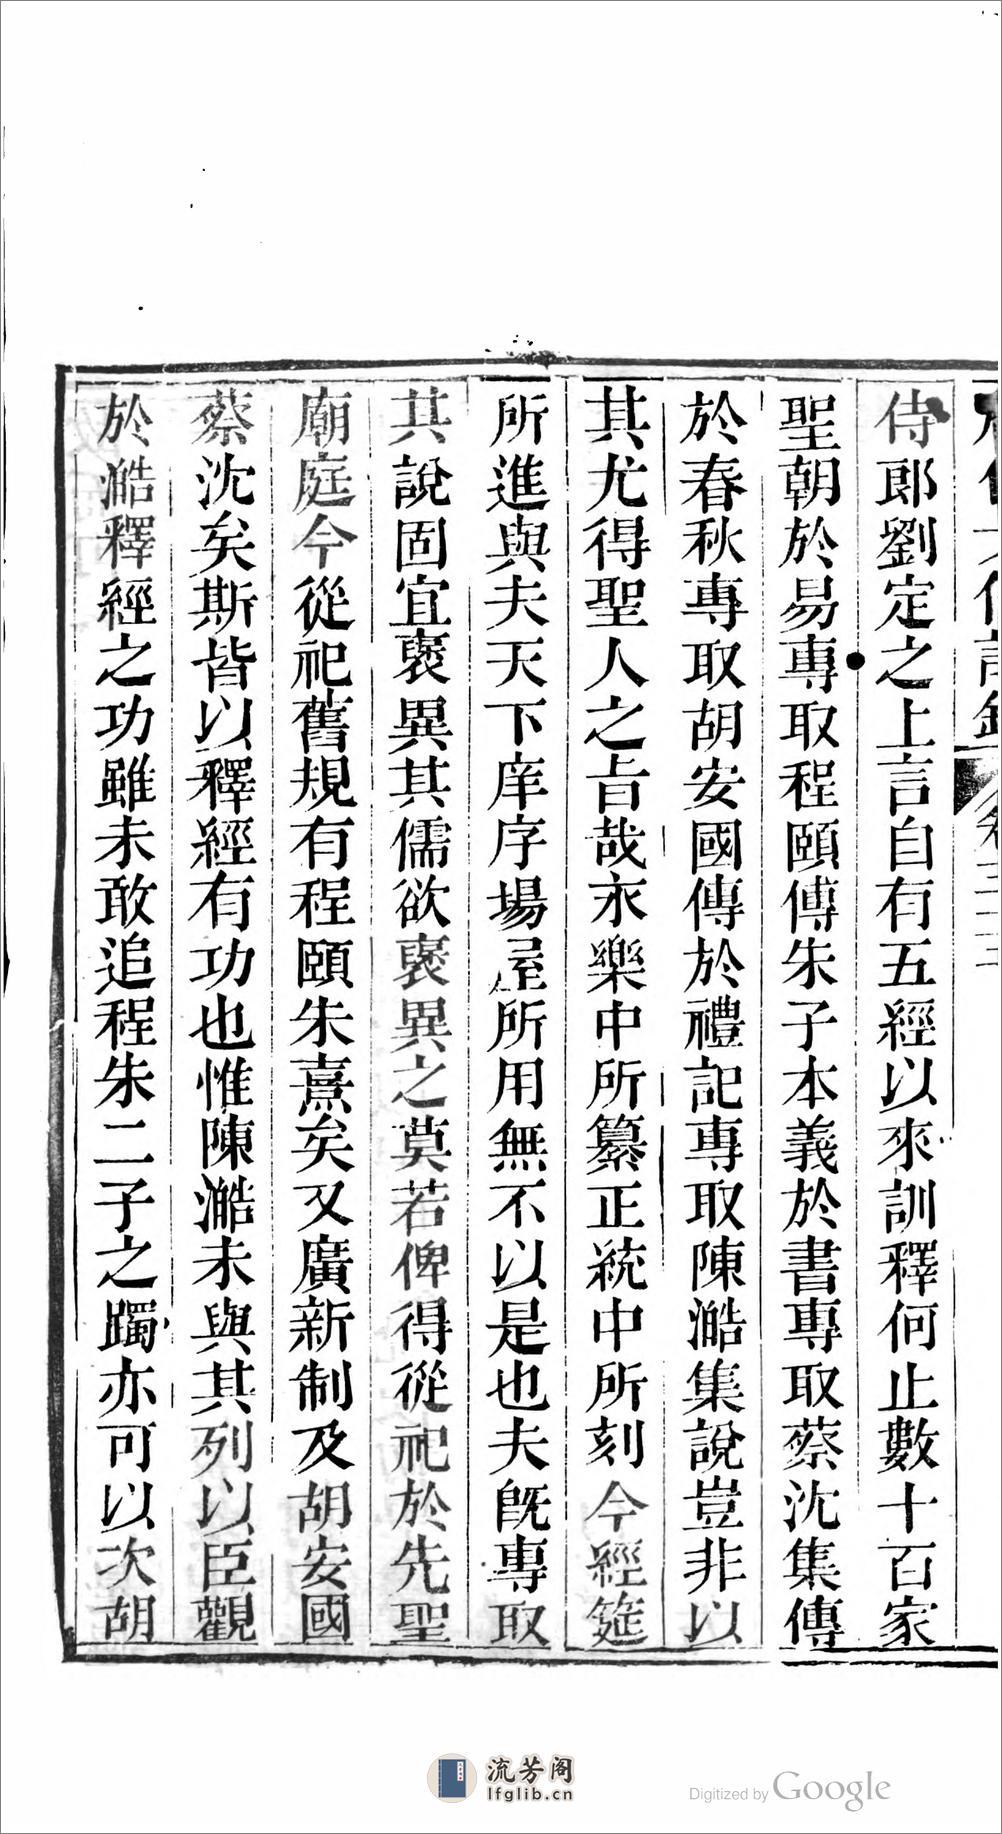 侍郎劉定之上言自有五經以來訓釋何止數十百家
聖朝於易專取程頤傳朱子本義於書專取蔡沈集傳
於春秋專取胡安國傳於禮記專取陳澔集說豈非以
其尤得聖人之旨哉永樂中所纂正統中所刻今經筵
所進與夫天下庠序場屋所用無不以是也夫旣專取
其說固宜褒異其儒欲褒異之莫若俾得從祀於先聖
廟庭今從祀舊規有程頤朱熹矣又廣新制及胡安國
蔡沈矣斯皆以釋經有功也惟陳澔未與其列以臣觀
於澔釋經之功雖未敢追程朱二子之躅亦可以次胡
流芳阁
lfglib.cn
Digitized by Google